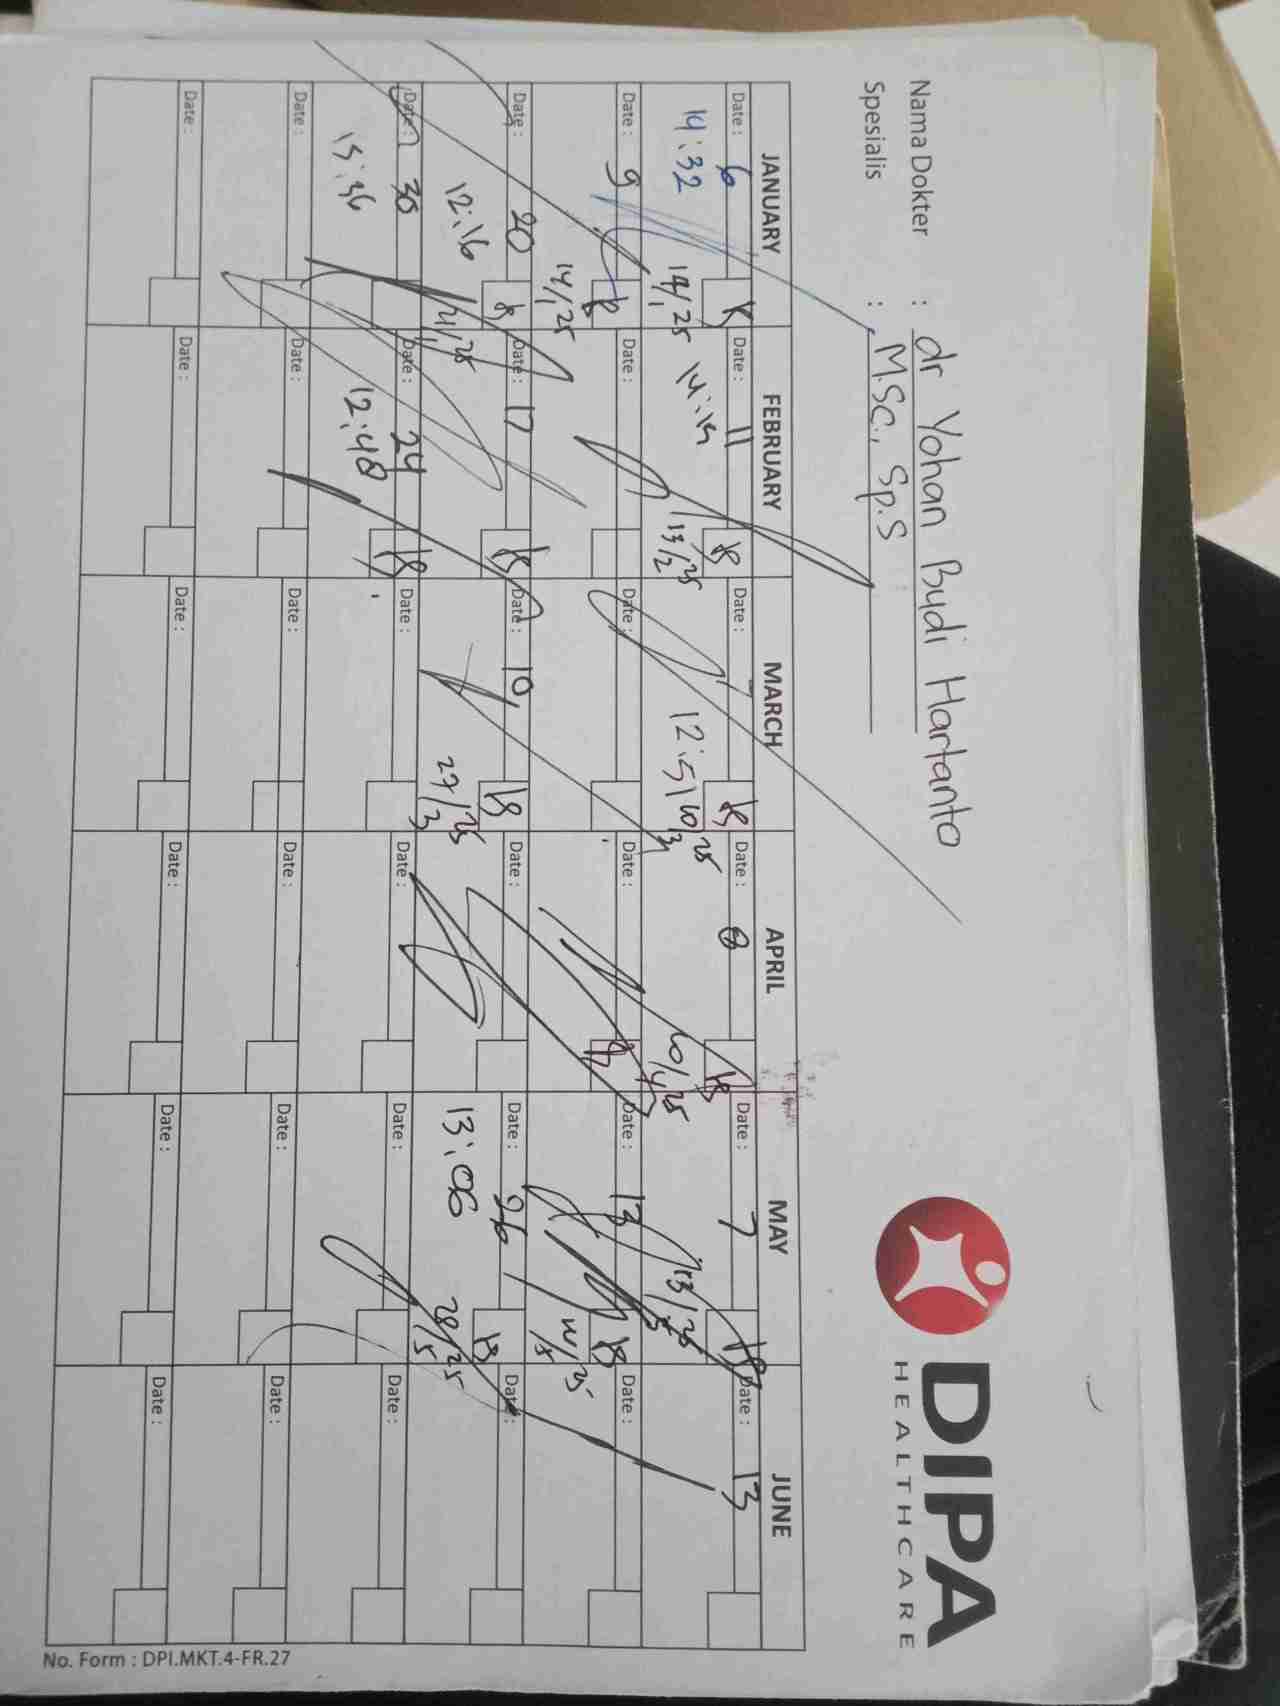 Nama Dokter : dr Yohan Budi Hartanto
Spesialis : M.Sc., Sp.S
DIPA
HEALTHCARE
JANUARY FEBRUARY MARCH APRIL MAY JUNE
Date : 6 Date : 11 Date : Date : 8 Date : 7 Date : 13
14:32 14/1 25 13/2 25 12:51 10/3 25 10/4 25 13/5 25
Date : 9 Date : Date : Date : Date : 13 Date :
14/1 25
Date : 20 Date : 17 Date : 10 Date : Date : 26 Date :
12:16 21/1 25 27/3 25 13:06 28/5 25
Date : 30 Date : 24 Date : Date : Date : Date :
12:48
Date : Date : Date : Date : Date : Date :
Date : Date : Date : Date : Date : Date :
No. Form : DPI.MKT.4-FR.27